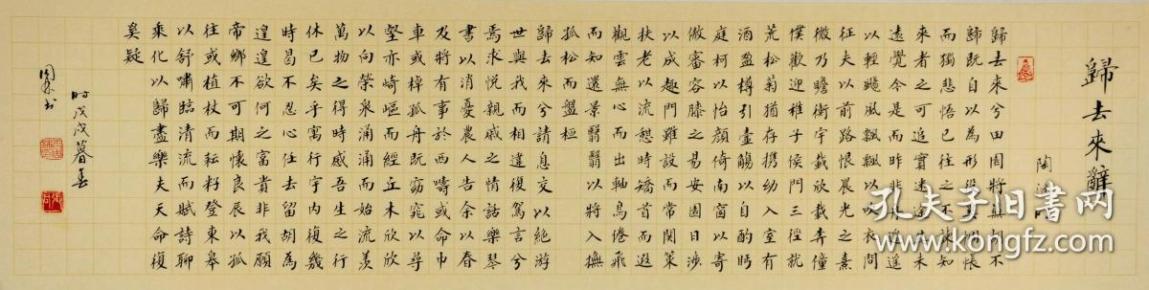 歸去來辭
陶
歸去來兮田園將蕪胡不
歸既自以為形役奚惆悵
而獨悲悟已往之不諫知
來者之可追實迷途其未
遠覺今是而昨非舟遙遙
以輕颺風飄飄以吹衣問
征夫以前路恨晨光之熹
微乃瞻衡宇載欣載奔僮
僕歡迎稚子候門三徑就
荒松菊猶存携幼入室有
酒盈樽引壺觴以自酌眄
庭柯以怡顏倚南窗以寄
傲審容膝之易安園日涉
以成趣門雖設而常関策
扶老以流憩時矯首而遐
觀雲無心而出軸鳥倦飛
而知還景翳翳以將入撫
孤松而盤桓
歸去來兮請息交以絶游
世與我而相違復駕言兮
焉求悅親戚之情話樂琴
書以消憂農人告余以春
及將有事於西疇或命巾
車或棹孤舟既窈窕以尋
壑亦崎嶇而經丘木欣欣
以向榮泉涌涌而始流羡
萬物之得時感吾生之行
休已矣乎寓行宇內復幾
時曷不忍心任去留胡為
遑遑欲何之富貴非我願
帝鄉不可期懷良辰以孤
往或植杖而耘耔登東皋
以舒嘯臨清流而賦詩聊
乘化以歸盡樂夫天命復
奚疑
時戊戌暮春
孔夫子旧書网
www.kongfz.com